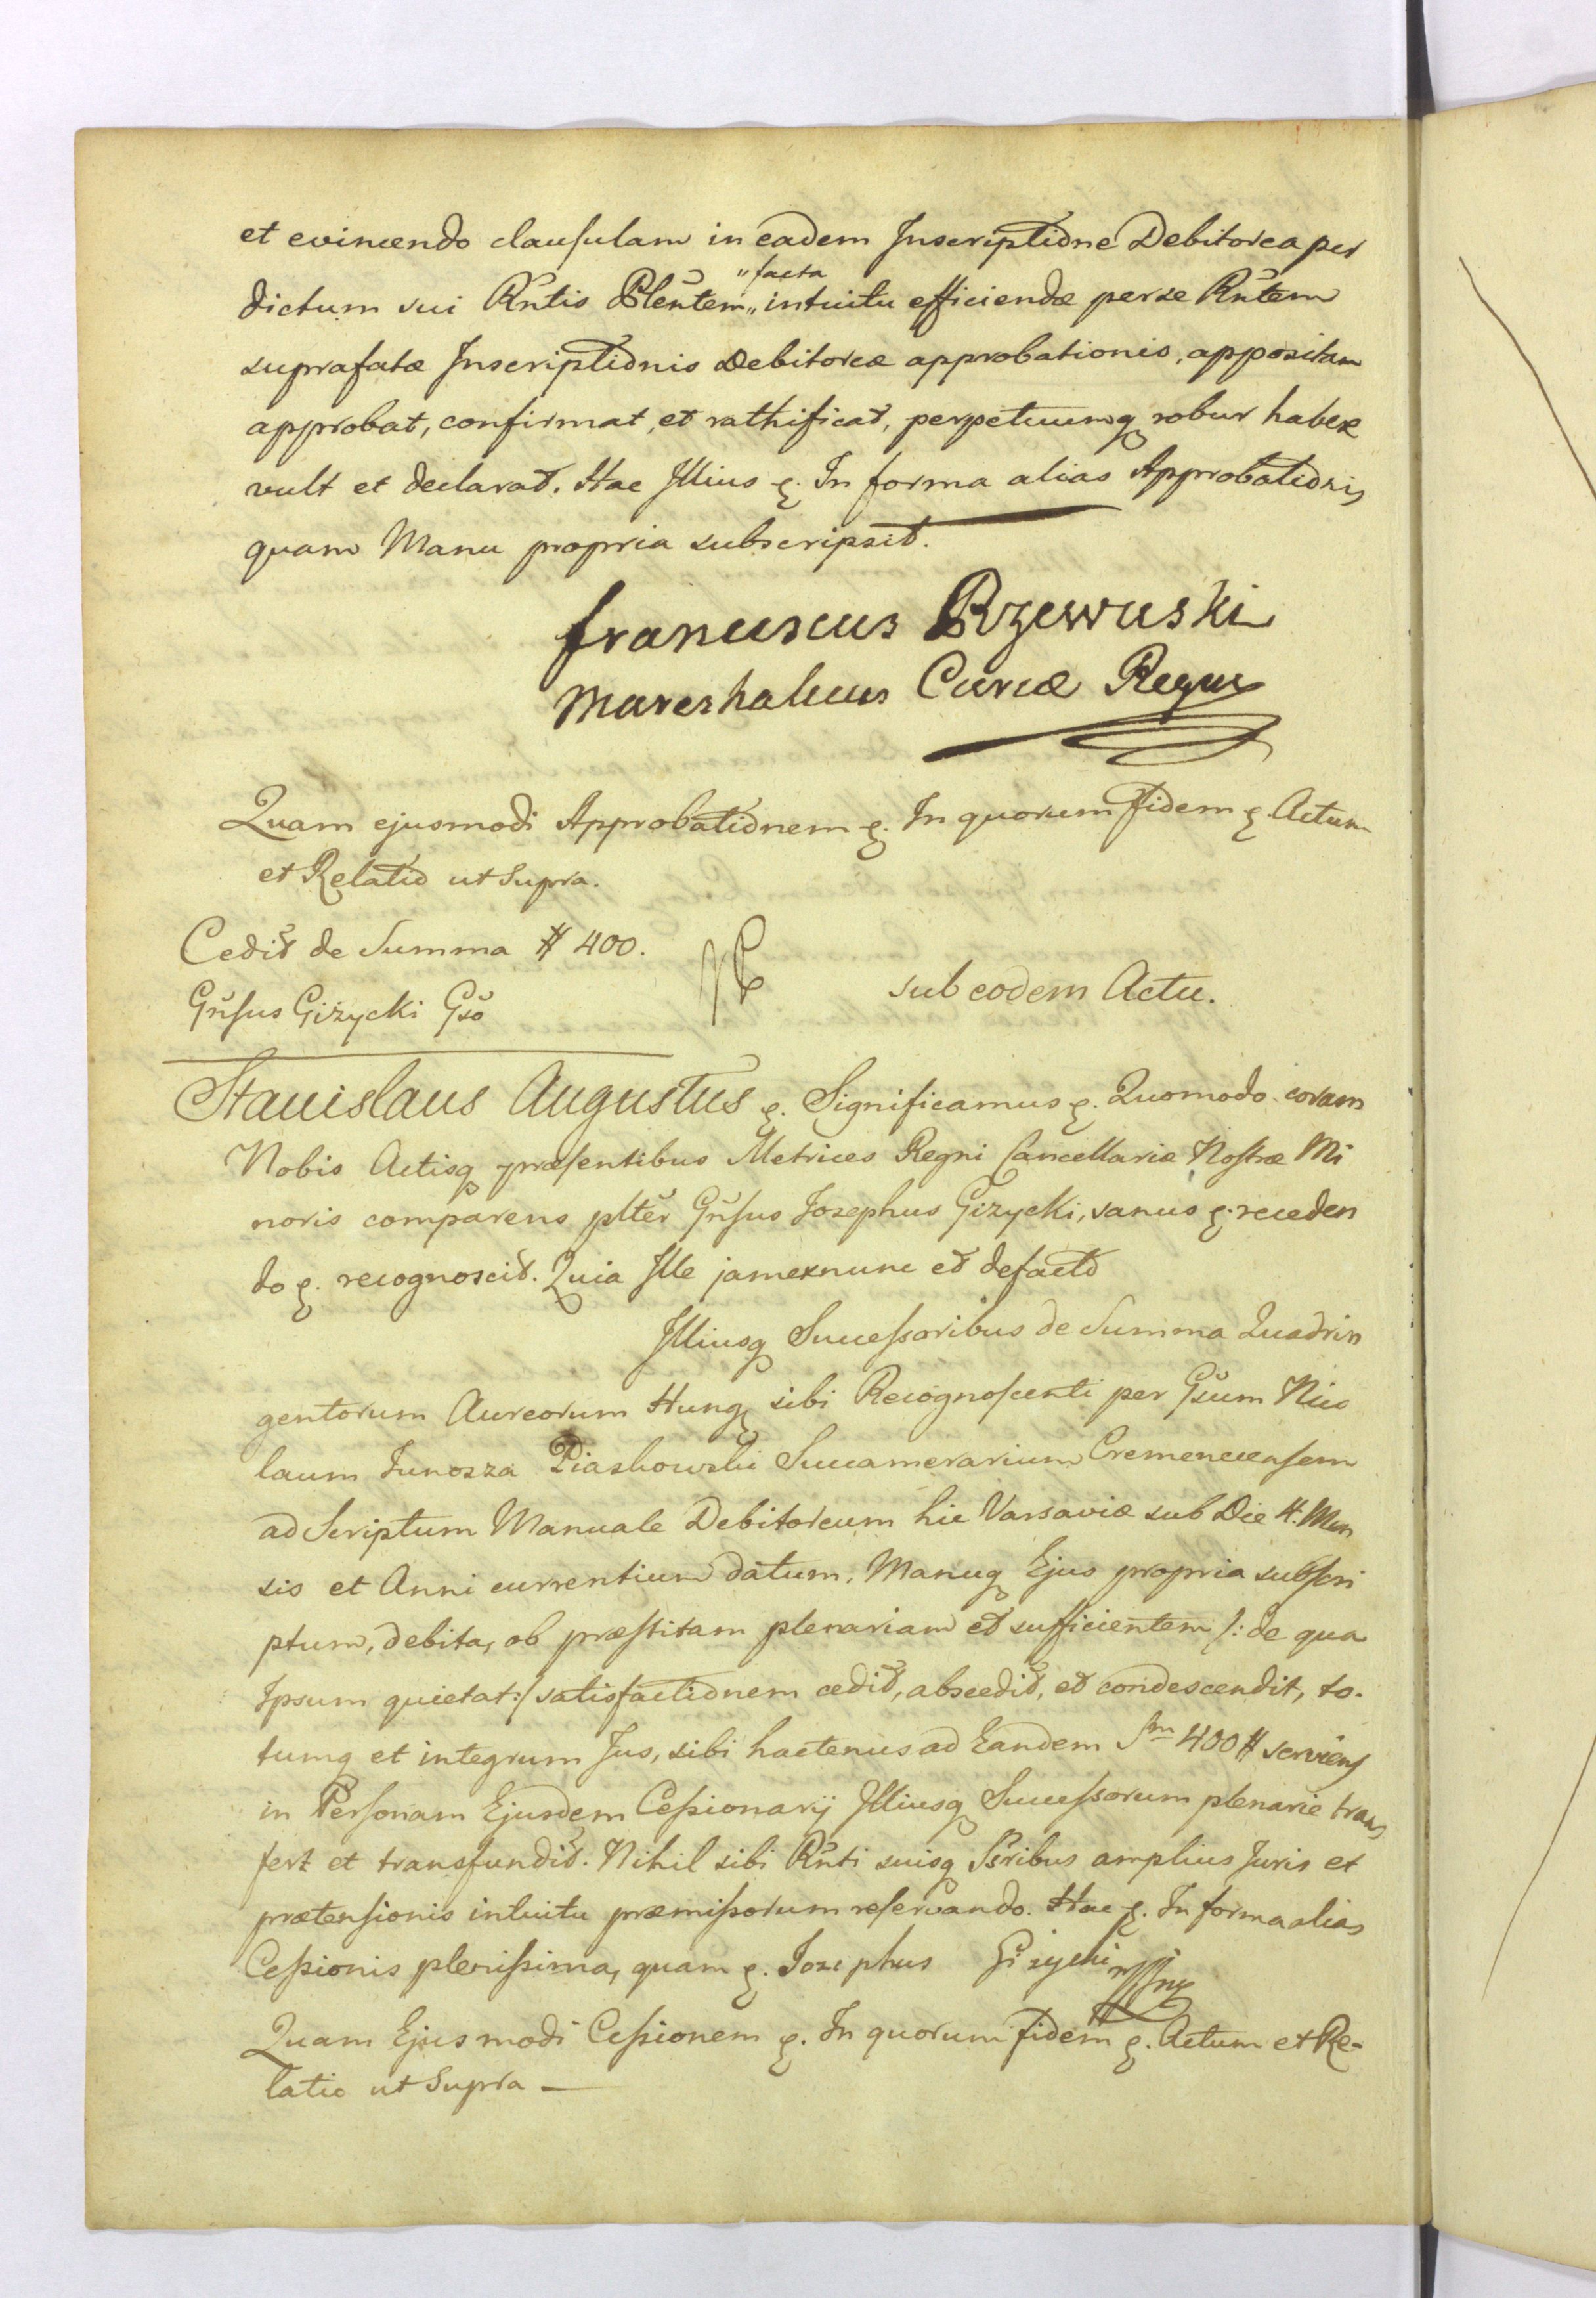 et evincendo clausulam in eadem Inscriptione Debitorea per
dictum sui Rntis Plentem „facta„ intuitu efficiendæ per se Rntem
suprafatæ Inscriptionis Debitoreæ approbationis, appositam
approbat, confirmat, et rathificat, perpetuumq robur habere
vult et declarat. Hac Illius ę. In forma alias Approbationis,
quam Manu propria subscripsit.
franciscus Rzewuski
Mareshalcus Curiæ Regni
Quam ejusmodi Approbationem ę. In quorum fidem ę. Actum
et Relatio ut Supra.
Cedit de Summa # 400.
Gnsus Giżycki Gso
sub eodem Actu.
Stanislaus Augustus ę. Significamus ę. Quomodo coram
Nobis Actisq præsentibus Metrices Regni Cancellariæ Nostræ Mi
noris comparens plter Gnsus Josephus Giżycki, sanus ę. receden
do ę. recognoscit. Quia Ille jam exnunc et defacto
Illiusq Successoribus de Summa Quadrin
gentorum Aureorum Hungę sibi Recognoscenti per Gsum Nico
laum Junosza Piaskowski Succamerarium Cremenecensem
ad Scriptum Manuale Debitoreum hic Varsaviæ sub Die 4. Men
sis et Anni currentium datum, Manuq Ejus propria subscri
ptum, debita, ob præstitam plenariam et sufficientem /: de qua
Ipsum quietat :/ satisfactionem cedit, abscedit, et condescendit, to-
tumq et integrum Jus, sibi hactenus ad Eandem Sm 400 # serviens
in Personam Ejusdem Cessionarij Illiusq Successorum plenarie trans
fert et transfundit. Nihil sibi Rnti suisq Ssribus amplius Juris et
prætensionis intuitu præmissorum reservando. Hac ę. In forma alias
Cessionis plenissima, quam ę. Josephus Giżycki mppy
Quam Ejusmodi Cessionem ę. In quorum fidem ę. Actum et Re-
latio ut Supra —